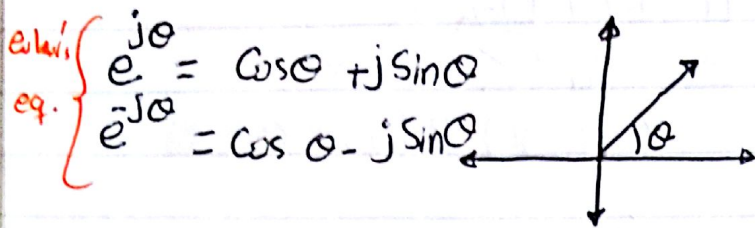 euler's
eq.
e^jθ = Cosθ + j Sinθ
e^-jθ = Cos θ - j Sinθ
θ